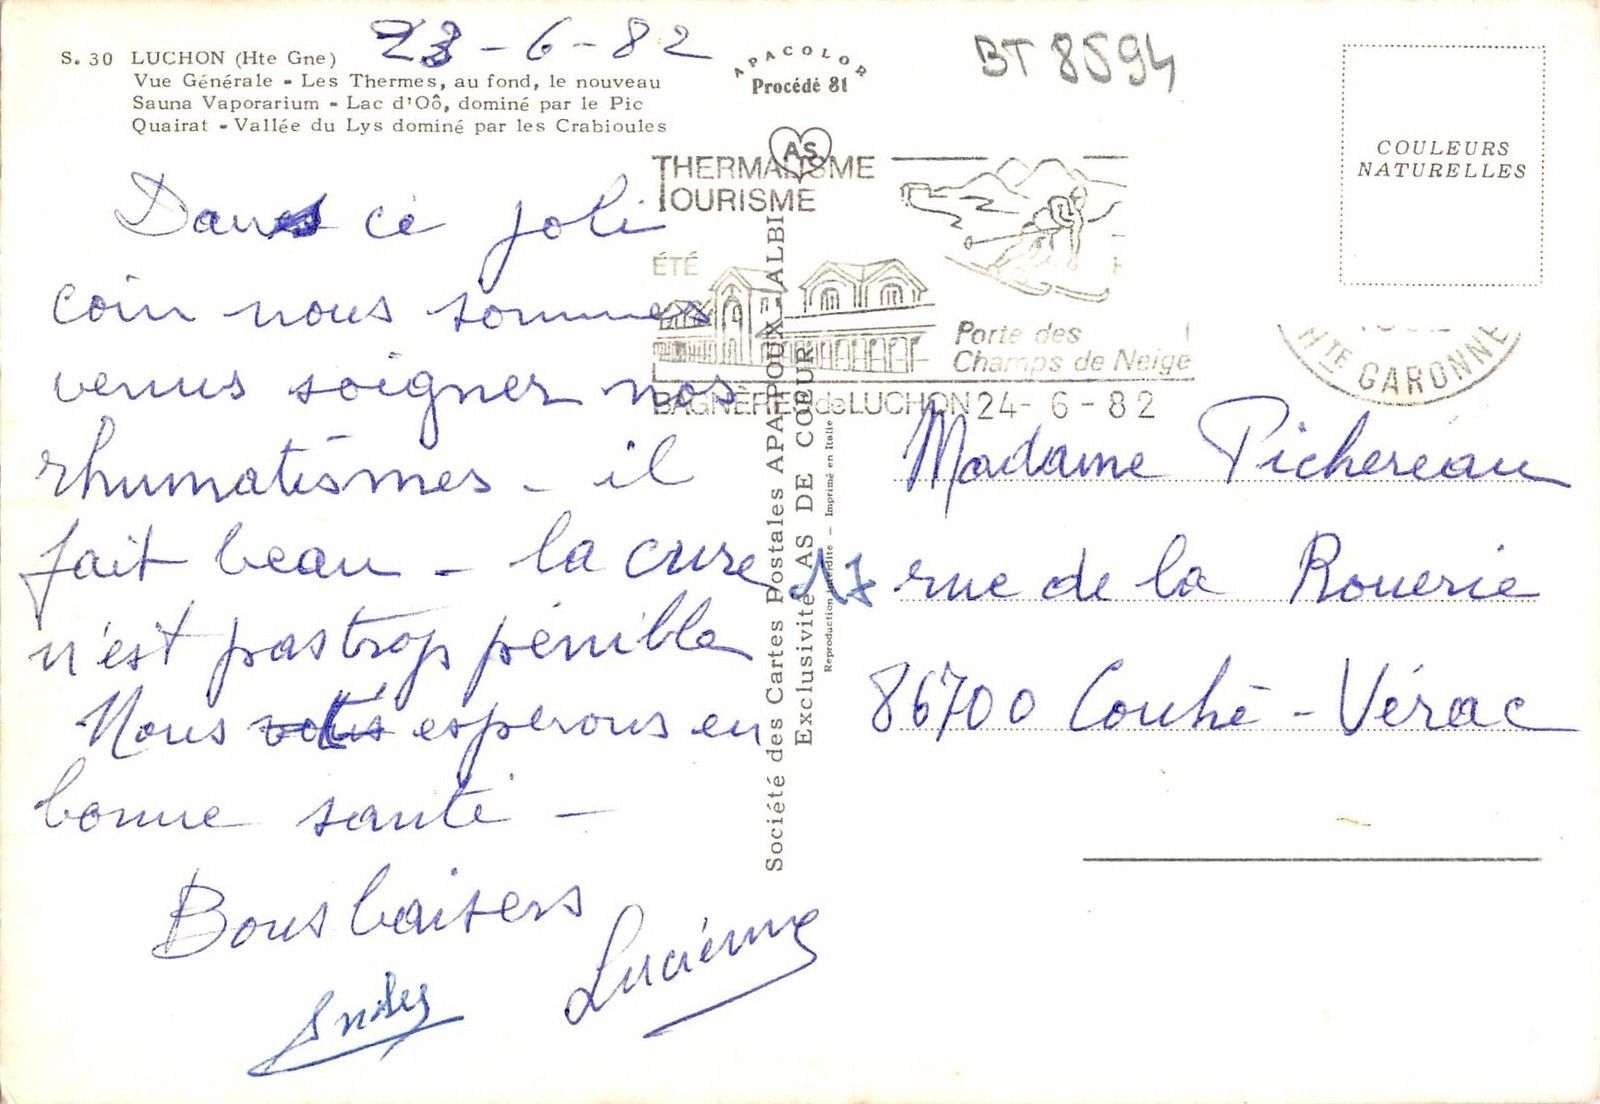 S. 30 LUCHON (Hte Gne)
Vue Générale - Les Thermes, au fond, le nouveau
Sauna Vaporarium - Lac d'Oô, dominé par le Pic
Quairat - Vallée du Lys dominé par les Crabioules
23-6-82
APACOLOR
Procédé 81
BT 8594
COULEURS
NATURELLES
AS
THERMALISME
TOURISME
ÉTÉ
Porte des
Champs de Neige
BAGNÈRES de LUCHON 24-6-82
HTE GARONNE
Dans ce joli
coin nous sommes
venus soigner nos
rhumatismes - il
fait beau - la cure
n'est pas trop pénible
Nous espérons en
bonne santé -
Bons baisers
Lucienne
Société des Cartes Postales APA-POUX - ALBI
Exclusivité AS DE COEUR
Reproduction Interdite - Imprimé en Italie
Madame Pichereau
17 rue de la Rouerie
86700 Couhé - Vérac